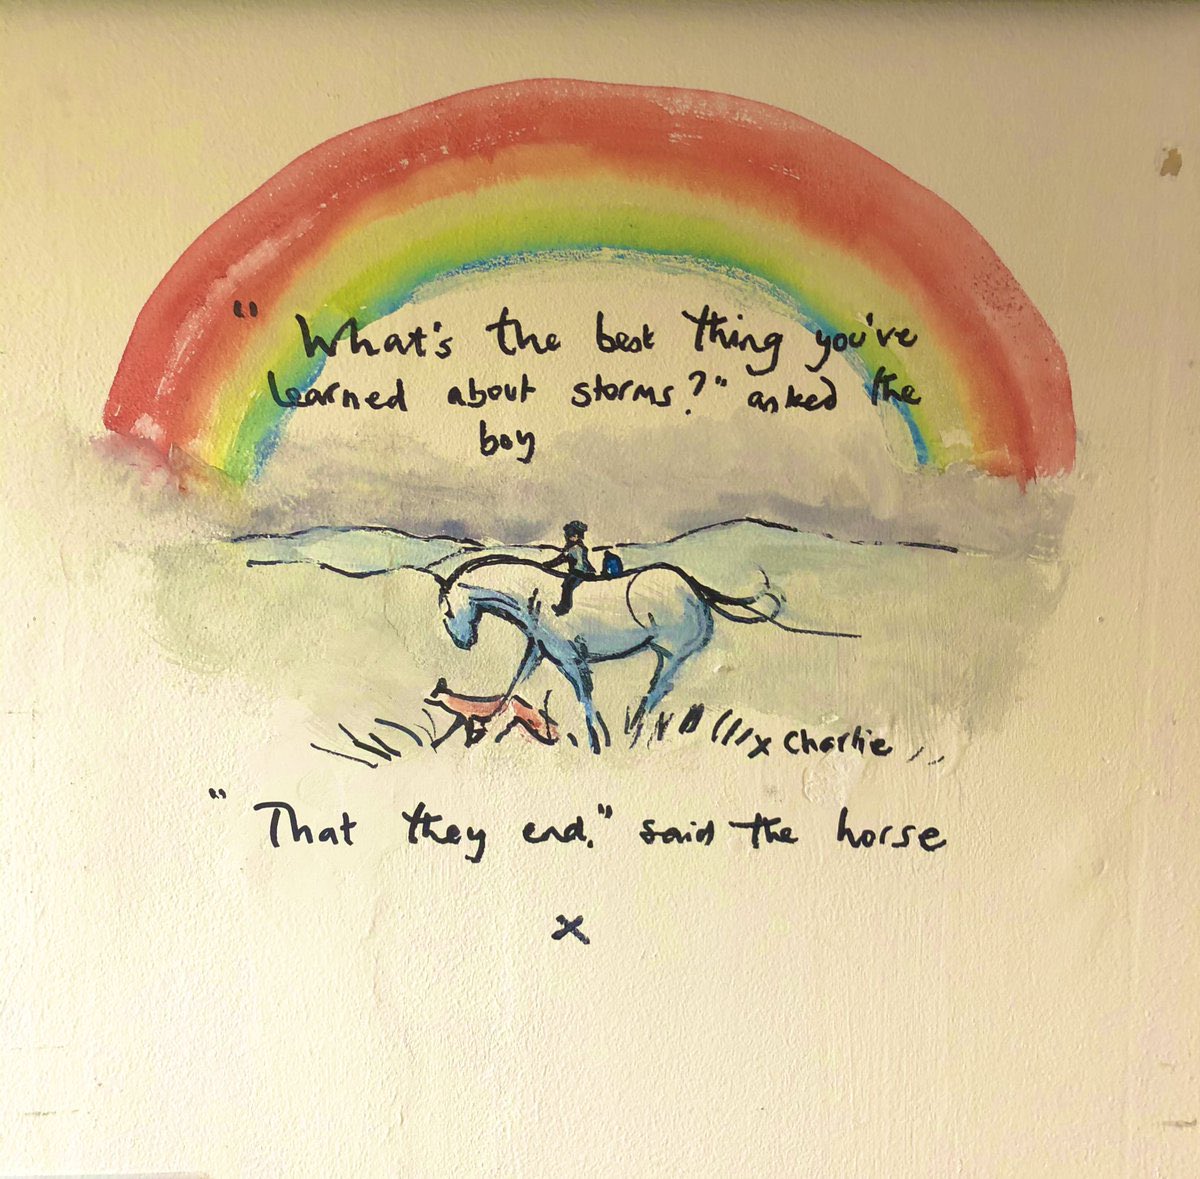 "What's the best thing you've
learned about storms?" asked the
boy
x Charlie
"That they end." said the horse
x